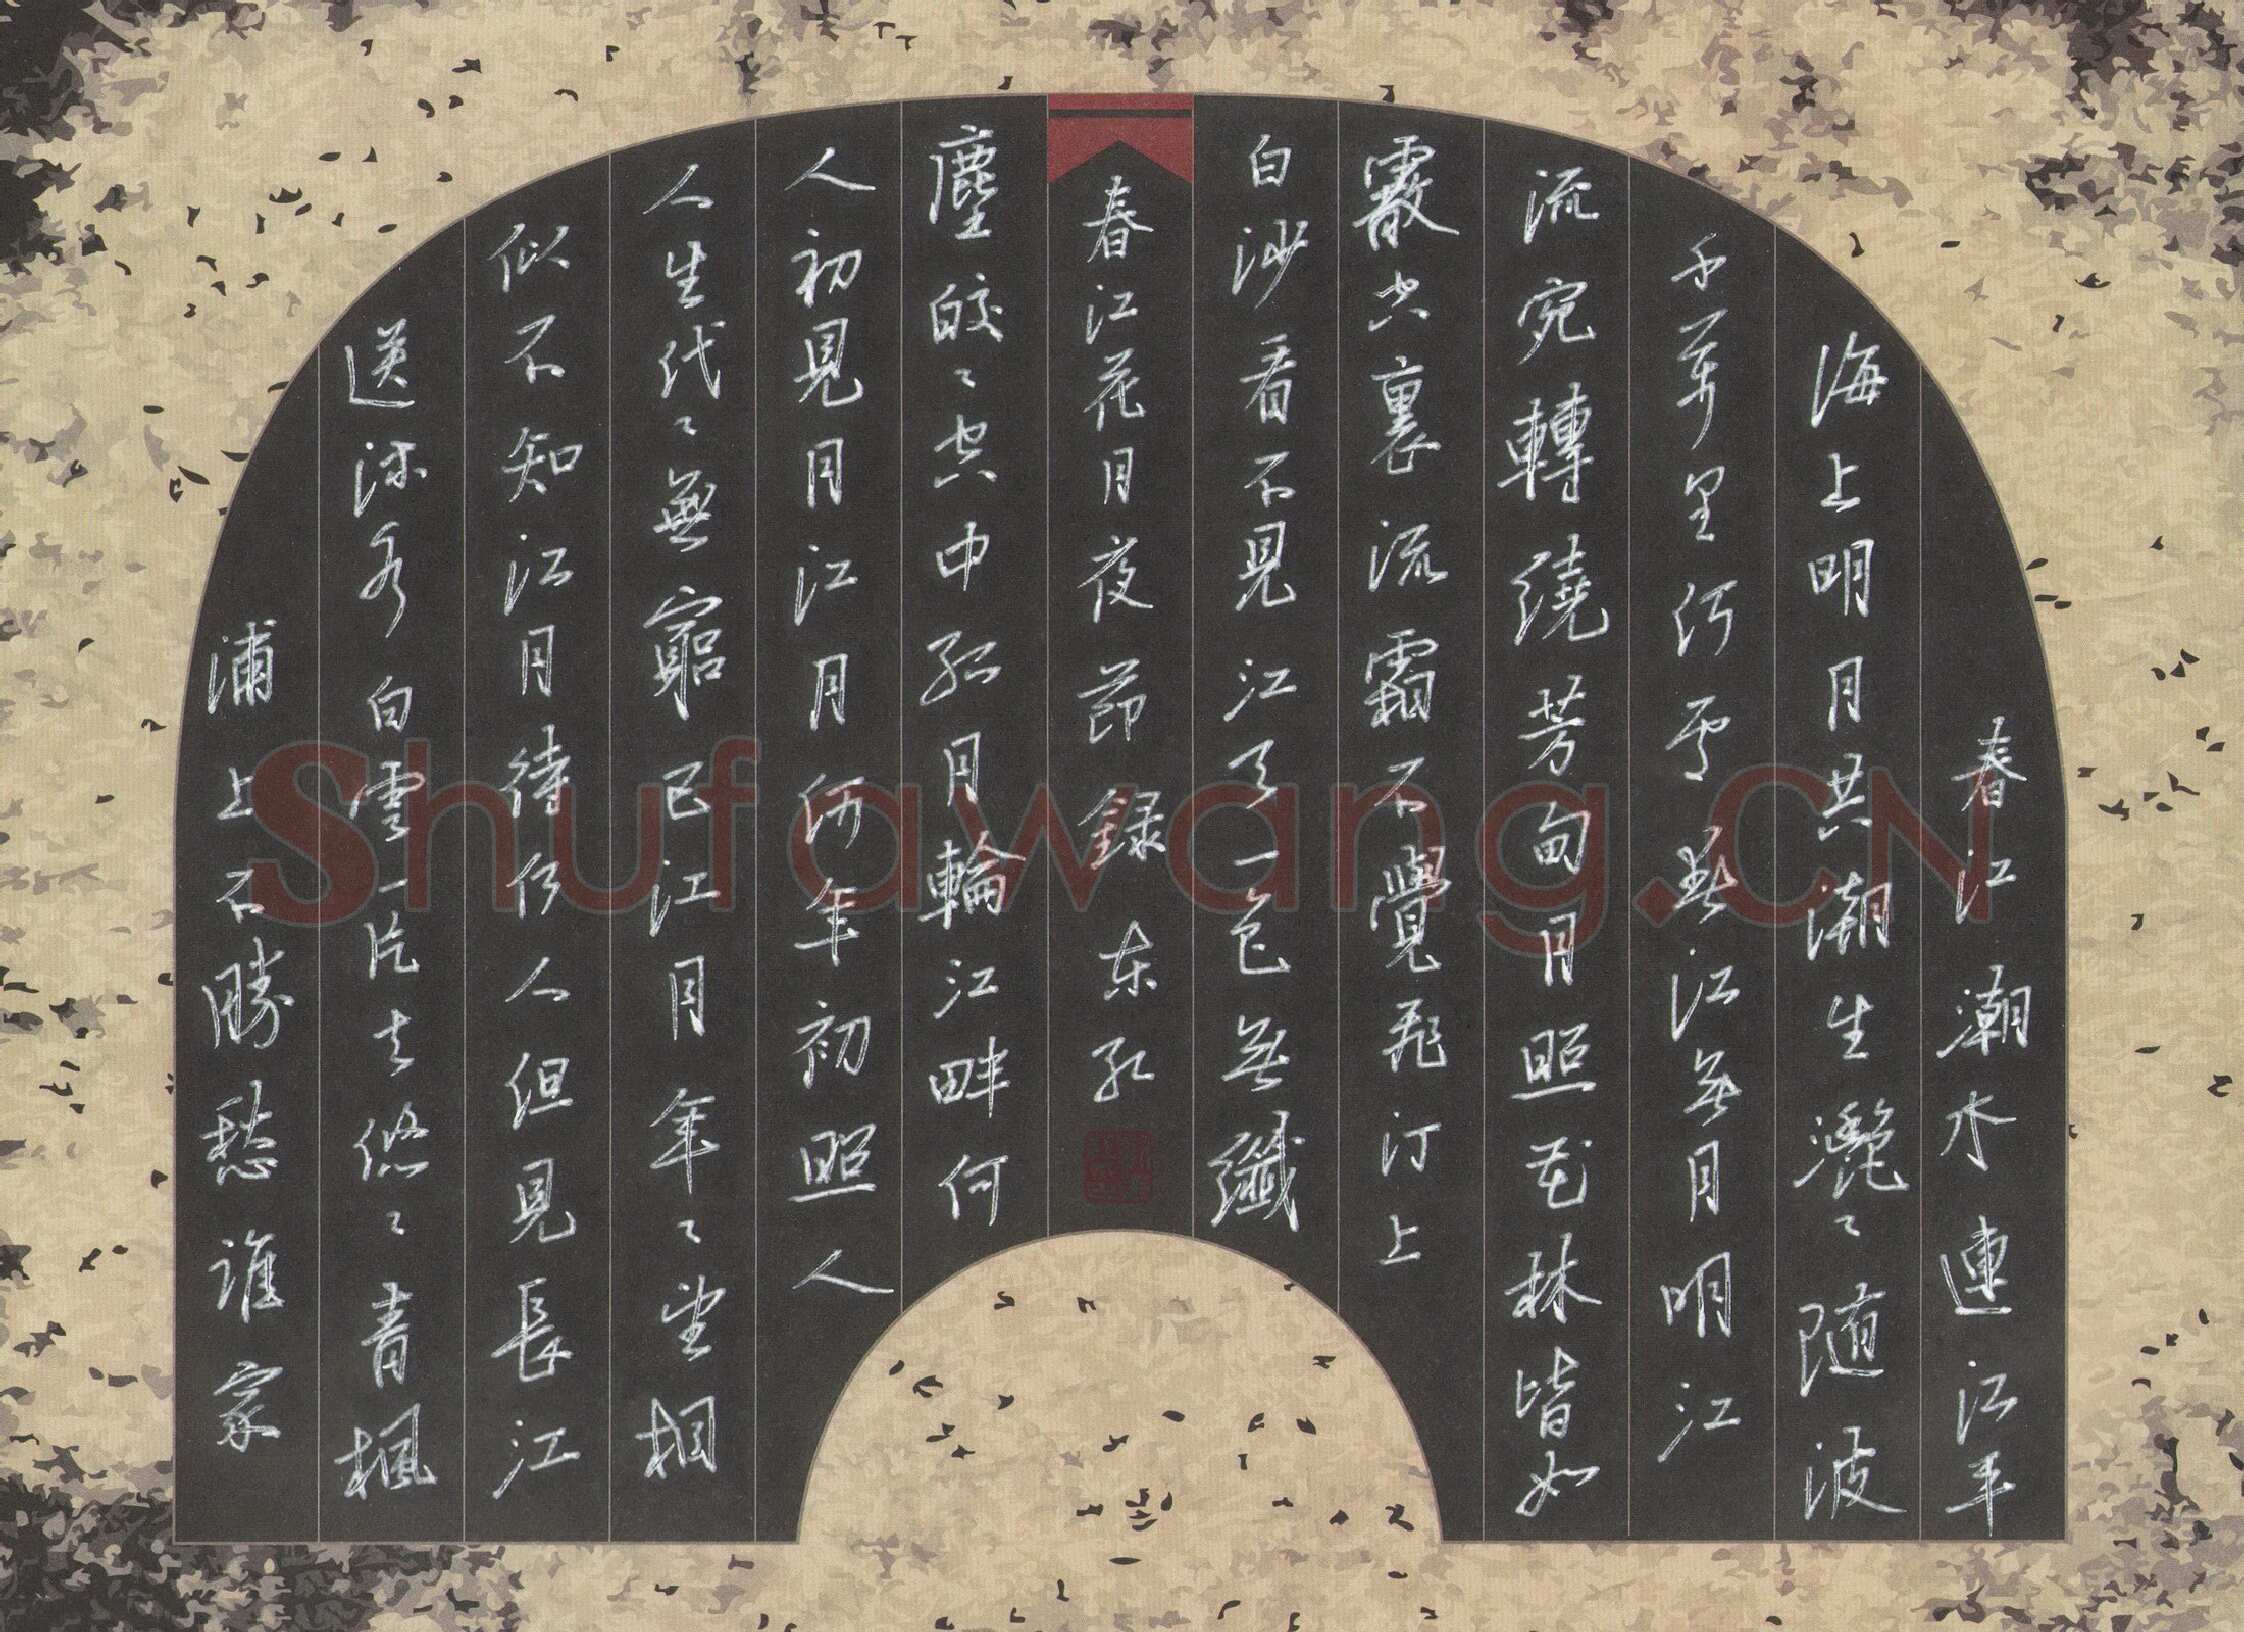 春江潮水連江平
海上明月共潮生灔〻随波
千萬里何處春江無月明江
流宛轉繞芳甸月照花林皆如
霰空裏流霜不覺飛汀上
白沙看不見江天一色無纖
春江花月夜節錄 东孔
塵皎〻空中孤月輪江畔何
人初見月江月何年初照人
人生代〻無窮已江月年〻望相
似不知江月待何人但見長江
送流水白雲一片去悠〻青楓
浦上不勝愁誰家
Shufawang.CN